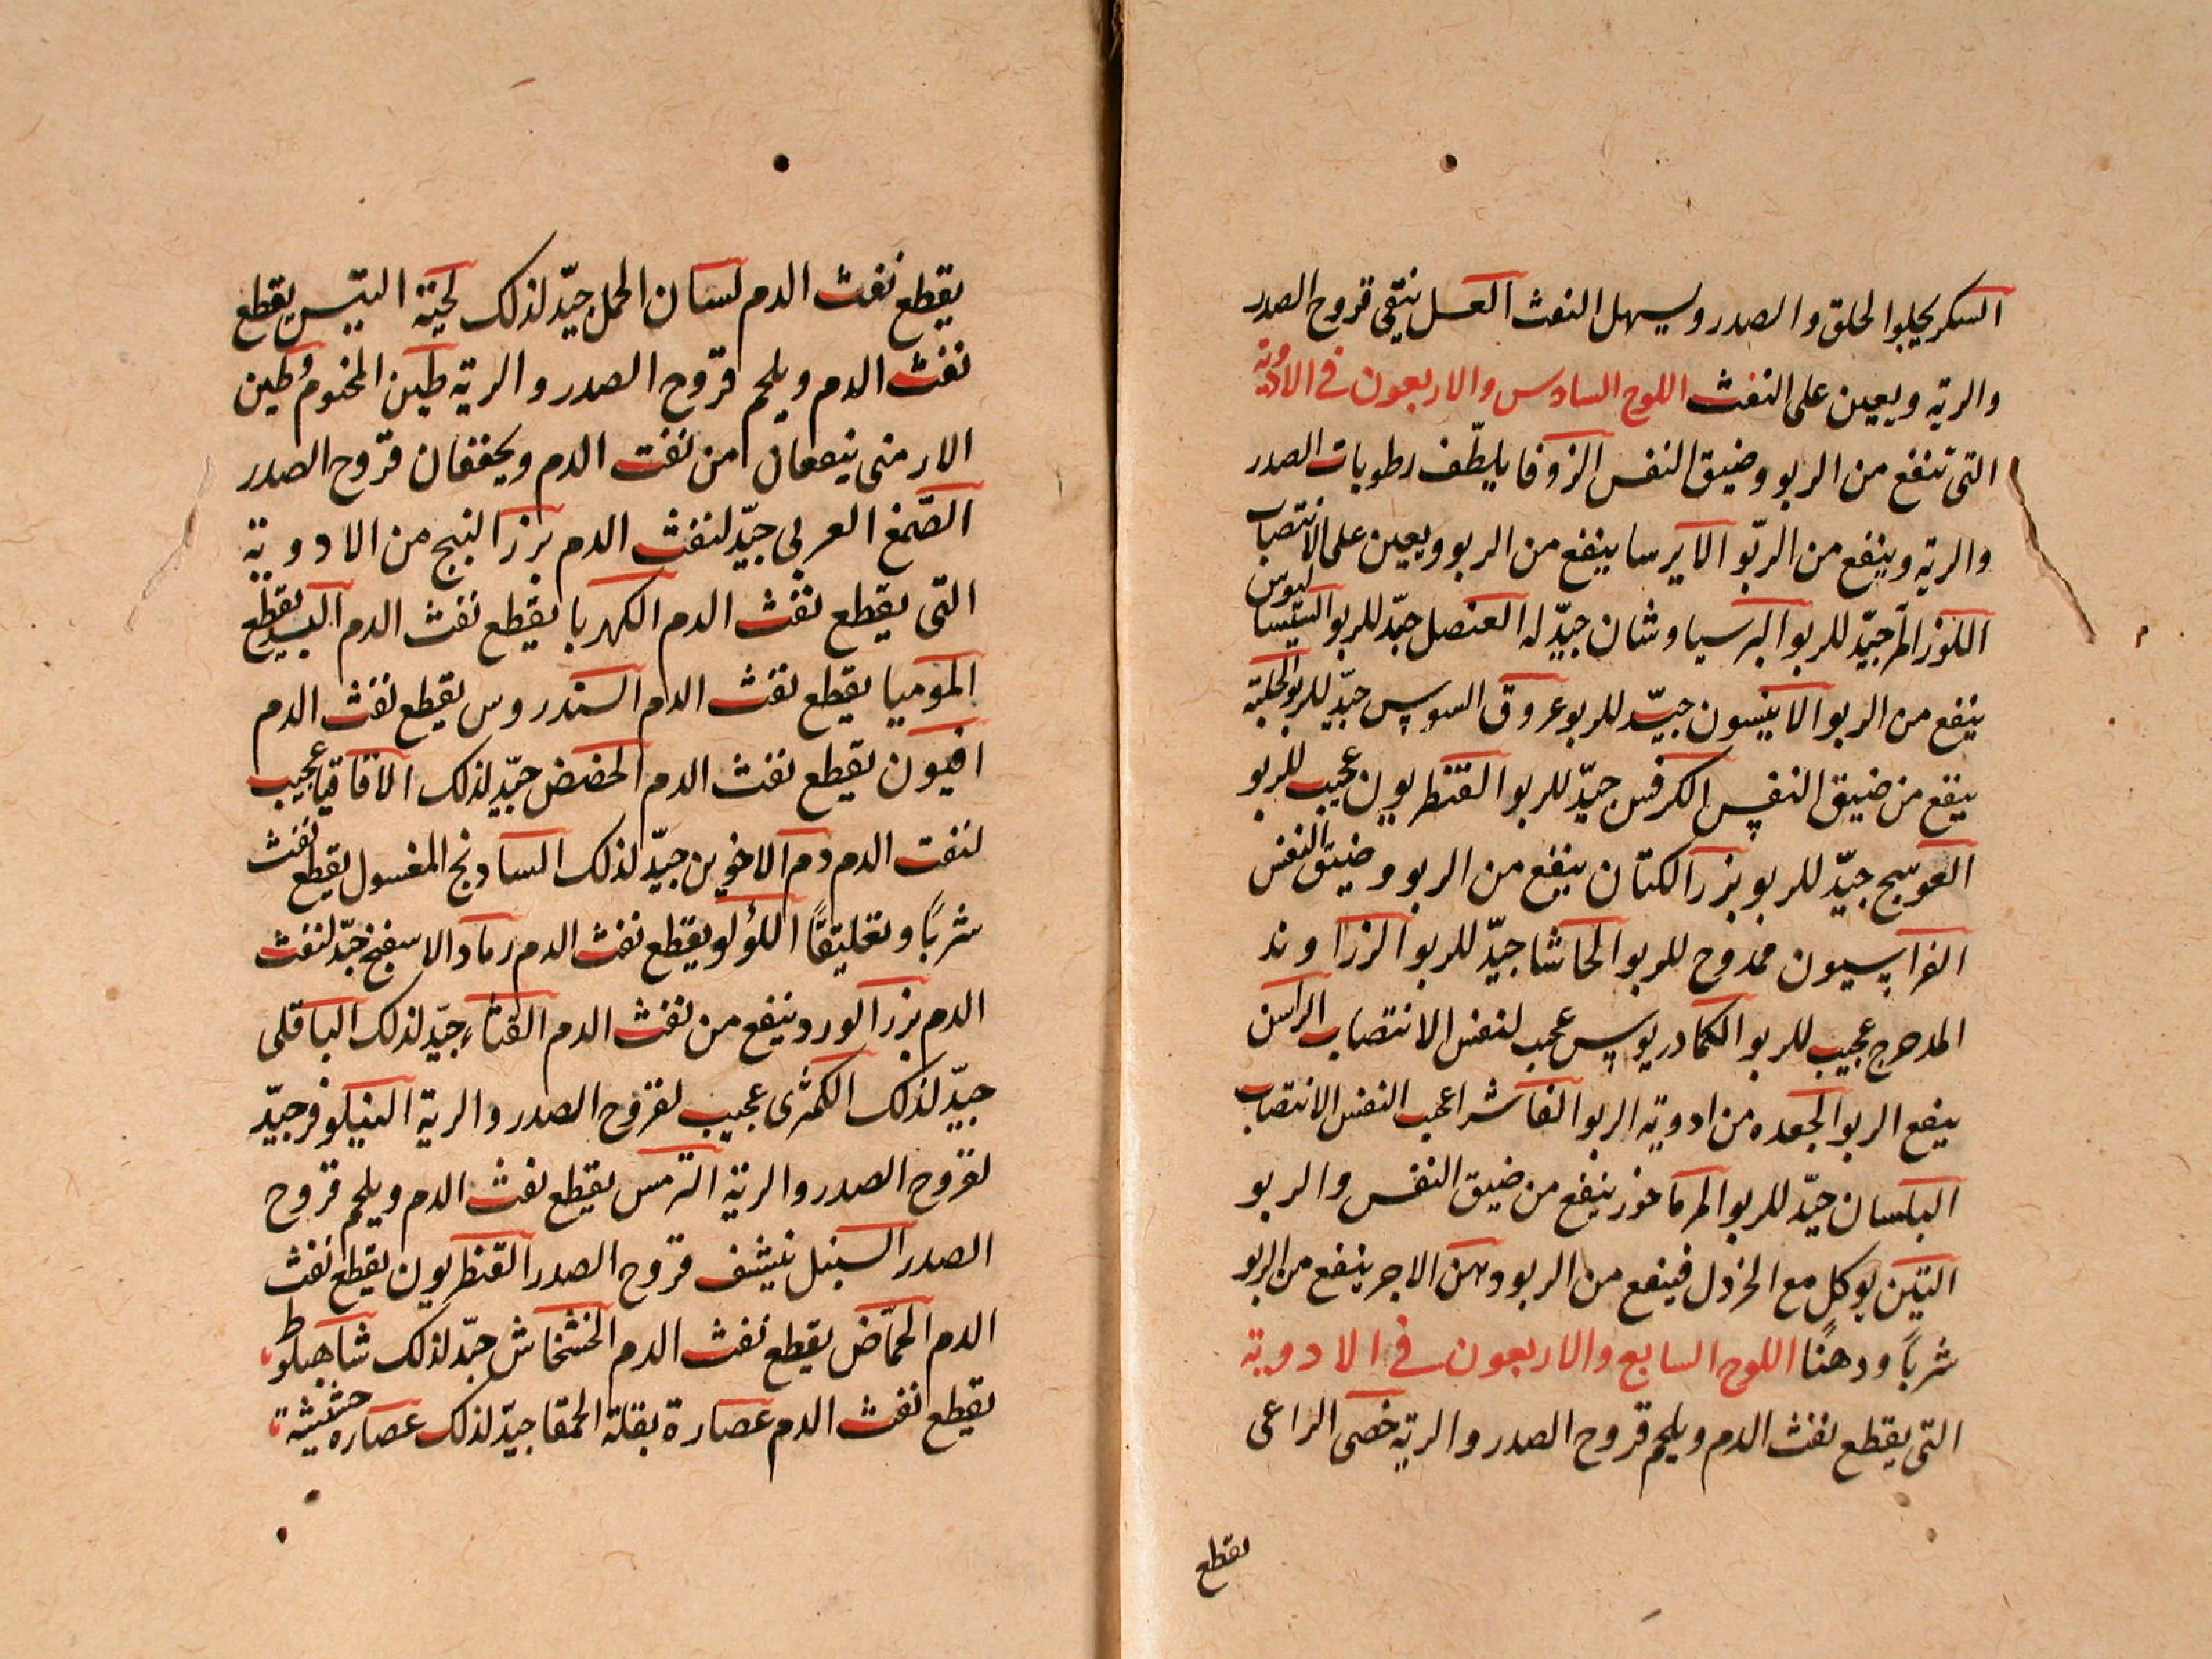 السكر يجلوا الحلق والصدر ويسهل النفث العسل ينقي قروح الصدر
والريه ويعين على النفث اللوح السادس والاربعون في الادوية
التى تنفع من الربو وضيق النفس الزوفا يلطّف رطوبات الصدر
والريه وينفع من الربّو الايرسا ينفع من الربو ويعين على الانتصاب
اللوز المرّ جيّد للربو البرسياوشان جيّد له العنصل جيّد للربو السيساليوس
ينفع من الربو الانيسون جيّد للربو عروق السوس جيّد للربو الحلبة
ينفع من ضيق النفس الكرفس جيّد للربو القنطريون عجيب للربو
العوسج جيّد للربو بزر الكتان ينفع من الربو وضيق النفس
الفراسيون ممدوح للربو الحاشا جيّد للربو الزراوند
المدحرج عجيب للربو الكمادريوس عجب لنفس الانتصاب الراسن
ينفع الربو الجعده من ادويه الربو الفاشرا عجب النفس الانتصاب
البلسان جيّد للربو المرماخوز ينفع من ضيق النفس والربو
التين يوكل مع الخردل فينفع من الربو دهن الاجر ينفع من الربو
شرباً ودهنًا اللوح السابع والاربعون في الادوية
التى يقطع نفث الدم ويلحم قروح الصدر والريه خصى الراعى
يقطع
يقطع نفث الدم لسان الحمل جيّد لذلك لحية التيس يقطع
نفث الدم ويلحم قروح الصدر والرية طين المختوم وطين
الارمنى ينفعان من نفث الدم ويجففان قروح الصدر
الصّمغ العربى جيّد لنفث الدم بزر البنج من الادوية
التى يقطع نفث الدم الكهربا يقطع نفث الدم البسد يقطع
الموميا يقطع نفث الدم السندروس يقطع نفث الدم
افيون يقطع نفث الدم الحضض جيّد لذلك الاقاقيا عجيب
لنفث الدم دم الاخوين جيّد لذلك السادنج المغسول يقطع نفث
شرباً وتعليقًا اللؤلو يقطع نفث الدم رماد الاسفنج جيّد لنفث
الدم بزر الورد ينفع من نفث الدم القثاء جيّد لذلك الباقلى
جيّد لذلك الكمثرى عجيب لقروح الصدر والرية النيلوفر جيّد
لقروح الصدر والرية الترمس يقطع نفث الدم ويلحم قروح
الصدر السنبل ينشف قروح الصدر القنطريون يقطع نفث
الدم الحمّاض يقطع نفث الدم الخشخاش جيّد لذلك شاهبلوط
يقطع نفث الدم عصارة بقلة الحمقا جيّد لذلك عصاره